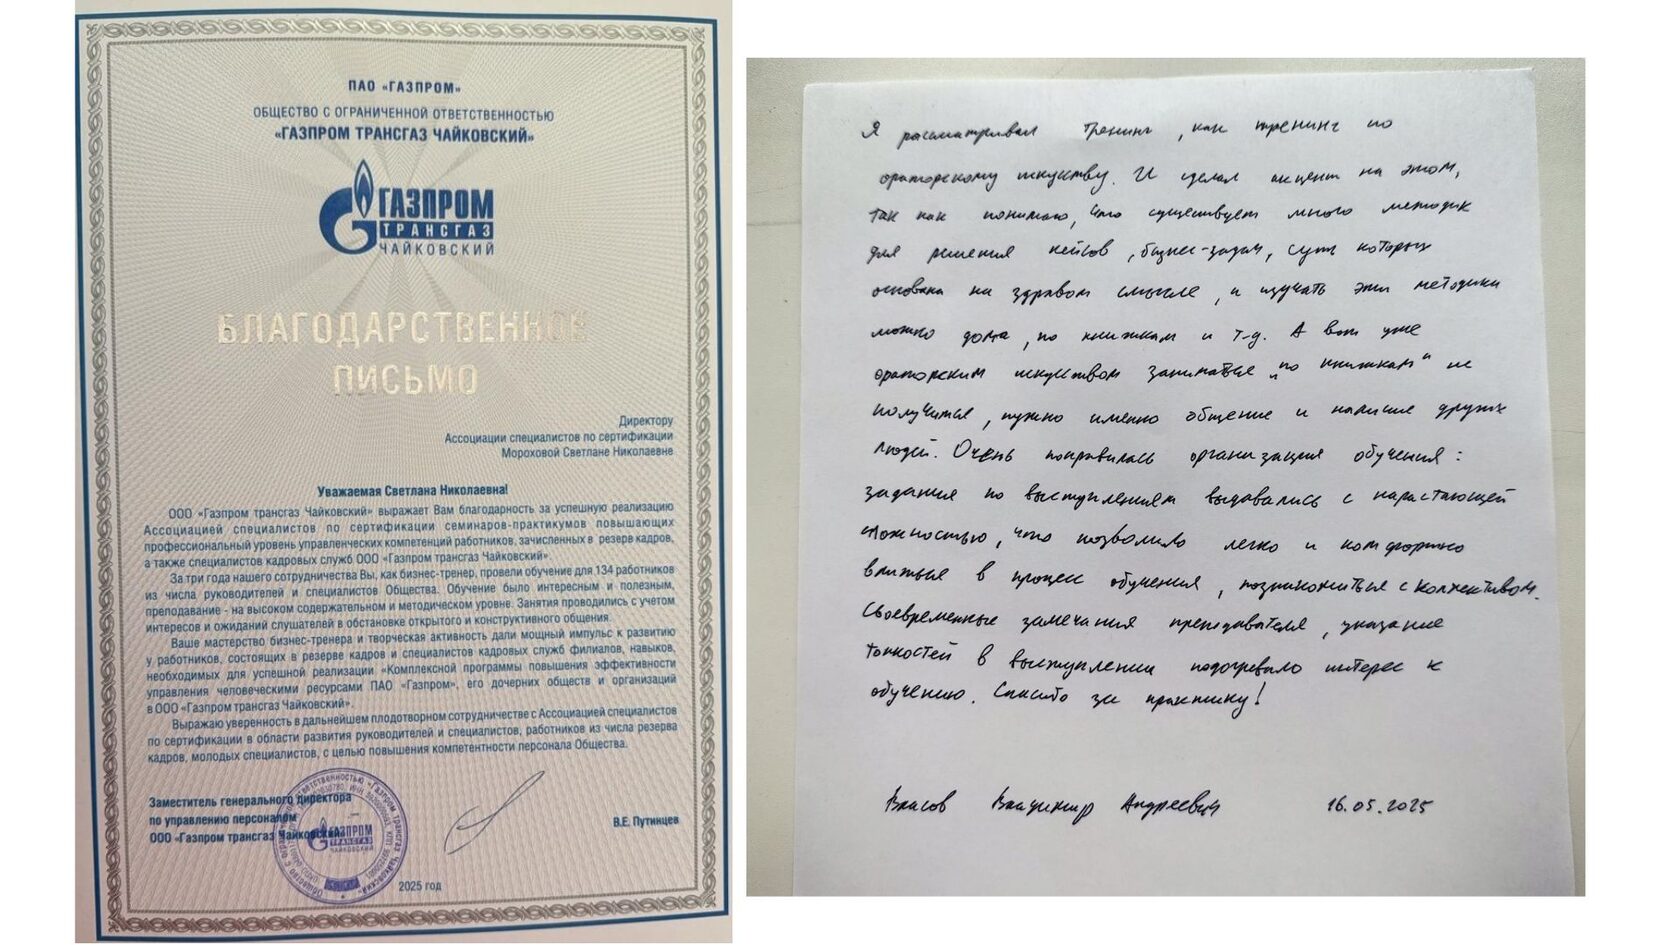 ПАО «ГАЗПРОМ»
ОБЩЕСТВО С ОГРАНИЧЕННОЙ ОТВЕТСТВЕННОСТЬЮ
«ГАЗПРОМ ТРАНСГАЗ ЧАЙКОВСКИЙ»
ГАЗПРОМ
ТРАНСГАЗ
ЧАЙКОВСКИЙ
БЛАГОДАРСТВЕННОЕ
ПИСЬМО
Директору
Ассоциации специалистов по сертификации
Мороховой Светлане Николаевне
Уважаемая Светлана Николаевна!
ООО «Газпром трансгаз Чайковский» выражает Вам благодарность за успешную реализацию
Ассоциацией специалистов по сертификации семинаров-практикумов повышающих
профессиональный уровень управленческих компетенций работников, зачисленных в резерв кадров,
а также специалистов кадровых служб ООО «Газпром трансгаз Чайковский».
За три года нашего сотрудничества Вы, как бизнес-тренер, провели обучение для 134 работников
из числа руководителей и специалистов Общества. Обучение было интересным и полезным,
преподавание - на высоком содержательном и методическом уровне. Занятия проводились с учетом
интересов и ожиданий слушателей в обстановке открытого и конструктивного общения.
Ваше мастерство бизнес-тренера и творческая активность дали мощный импульс к развитию
у работников, состоящих в резерве кадров и специалистов кадровых служб филиалов, навыков,
необходимых для успешной реализации «Комплексной программы повышения эффективности
управления человеческими ресурсами ПАО «Газпром», его дочерних обществ и организаций
в ООО «Газпром трансгаз Чайковский».
Выражаю уверенность в дальнейшем плодотворном сотрудничестве с Ассоциацией специалистов
по сертификации в области развития руководителей и специалистов, работников из числа резерва
кадров, молодых специалистов, с целью повышения компетентности персонала Общества.
Заместитель генерального директора
по управлению персоналом
ООО «Газпром трансгаз Чайковский»
В.Е. Путинцев
ГАЗПРОМ
ТРАНСГАЗ
ЧАЙКОВСКИЙ
2025 год
Я рассматривал тренинг, как тренинг по
ораторскому искуству. И сделал акцент на этом,
так как понимаю, что существует много методик
для решения кейсов, бизнес-задач, суть которых
основана на здравом смысле, и изучать эти методики
можно дома, по книжкам и т.д. А вот уже
ораторским искуством заниматься „по книжкам" не
получится, нужно именно общение и наличие других
людей. Очень понравилась организация обучения:
задания по выступлениям выдавались с нарастающей
сложностью, что позволило легко и комфортно
влиться в процесс обучения, познакомиться с коллективом.
Своевременные замечания преподавателя, указание
тонкостей в выступлении подогревало интерес к
обучению. Спасибо за практику!
Власов Владимир Андреевич 16.05.2025